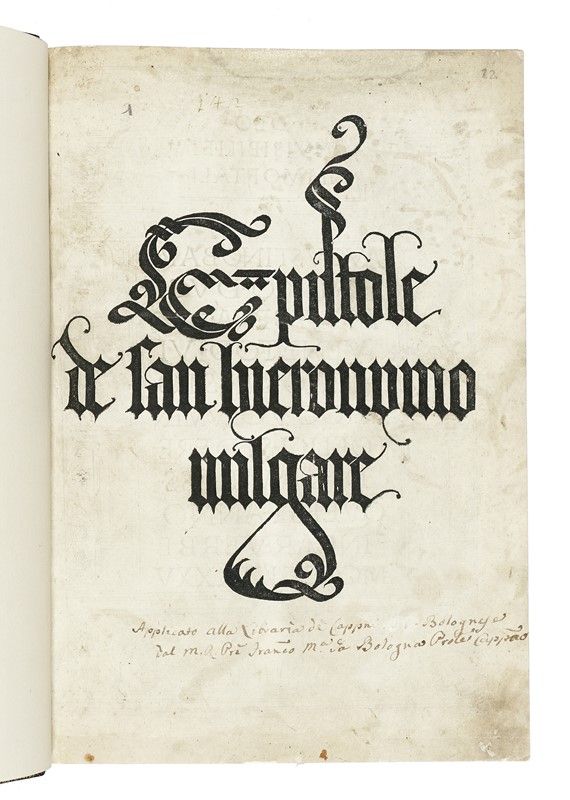 22
1
142
Epistole
de san hieronymo
vulgare
Applicato alla Libraria de Cappni Bolognese
dal M. R. Pre Franco Ma da Bologna Prole Cappno